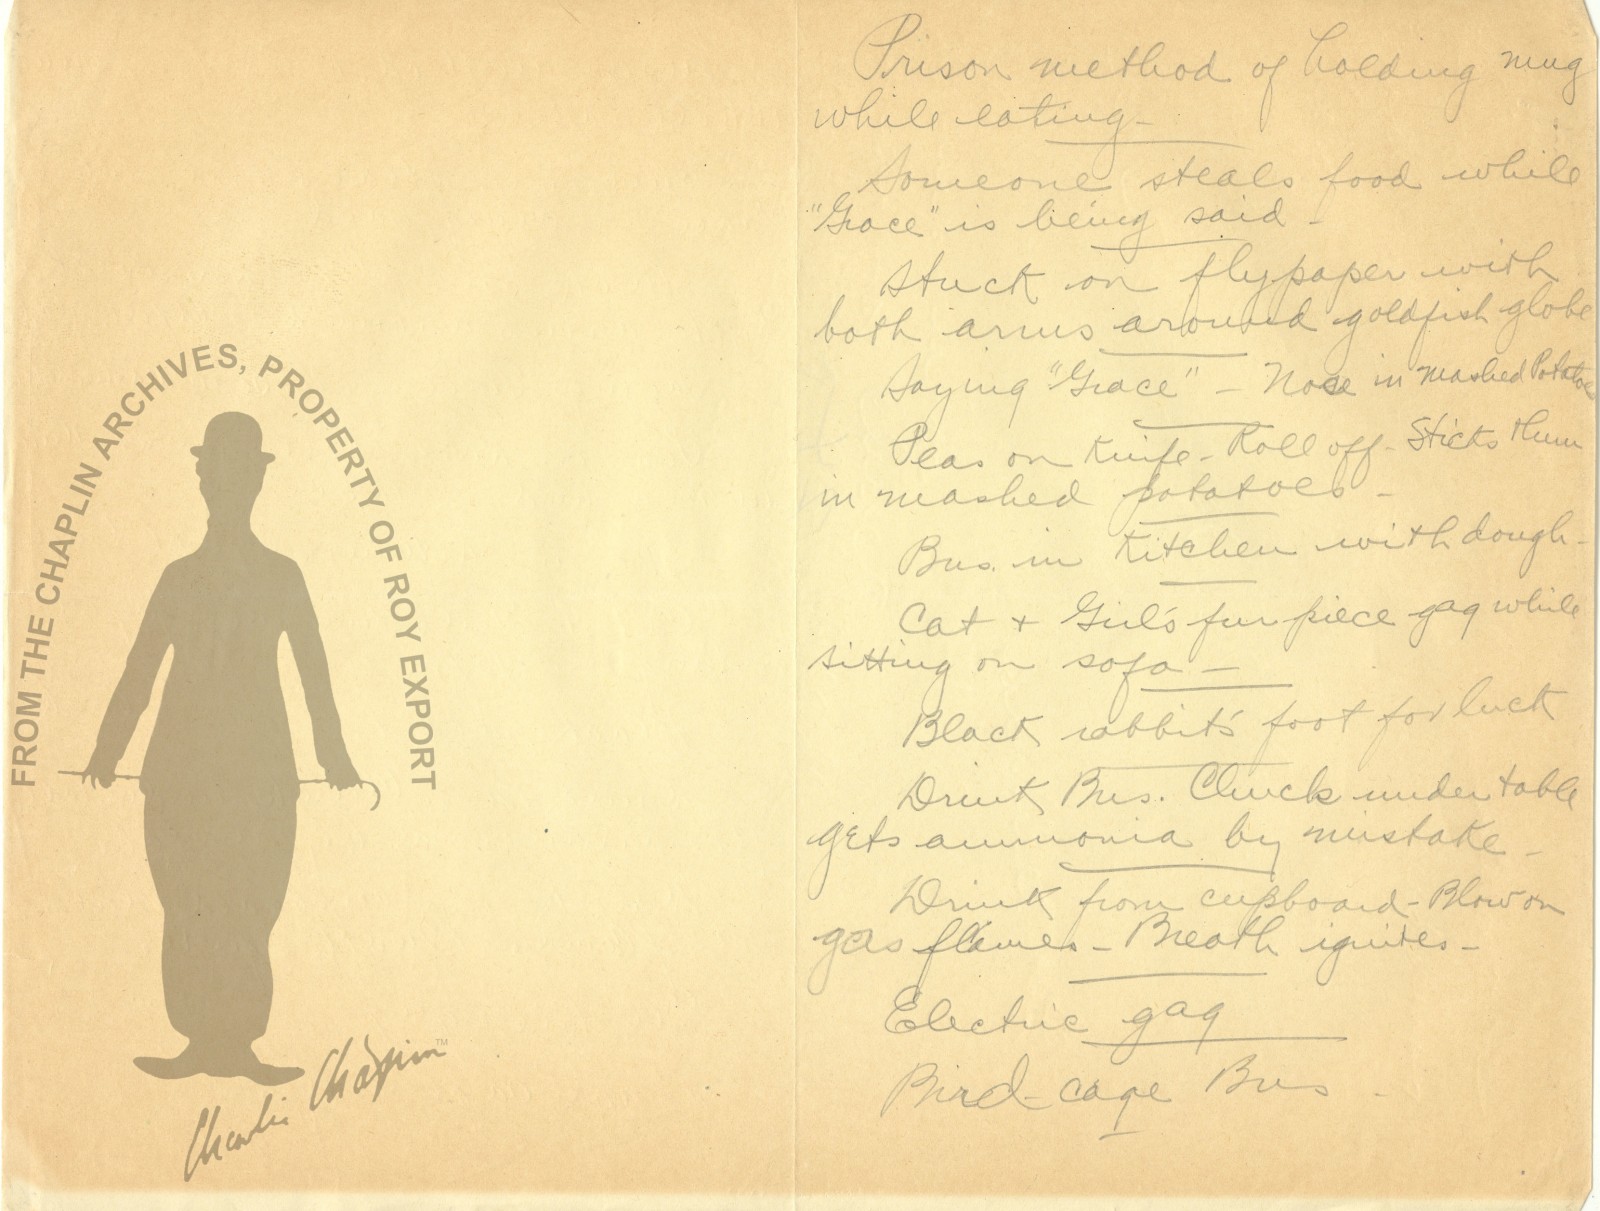 FROM THE CHAPLIN ARCHIVES, PROPERTY OF ROY EXPORT
Charlie Chaplin™
Prison method of holding mug
while eating—
Someone steals food while
"Grace" is being said —
Stuck on flypaper with
both arms around goldfish globe
Saying "Grace" — Nose in mashed Potatoes
Peas on Knife - Roll off - Sticks them
in mashed potatoes -
Bus. in Kitchen with dough -
Cat + Girl's fur piece gag while
sitting on sofa —
Black rabbit's foot for luck
Drink Bus. Chuck under table
gets ammonia by mistake -
Drink from cupboard - Blow on
gas flames - Breath ignites -
Electric gag
Bird-cage Bus -